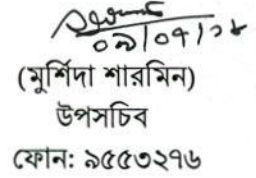 ০৯/০৭/১৮
(মুর্শিদা শারমিন)
উপসচিব
ফোন: ৯৫৫৩২৭৬